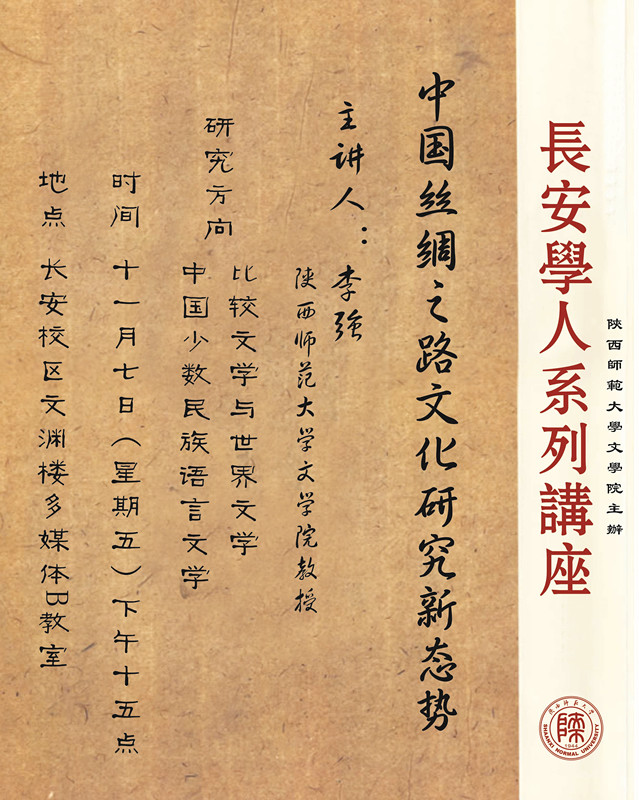 長安學人系列講座
陝西師範大學文學院主辦
中国丝绸之路文化研究新态势
主讲人：李强
陕西师范大学文学院教授
研究方向
比较文学与世界文学
中国少数民族语言文学
时间 十一月七日（星期五）下午十五点
地点 长安校区文渊楼多媒体B教室
陕西师范大学
SHAANXI NORMAL UNIVERSITY
1944